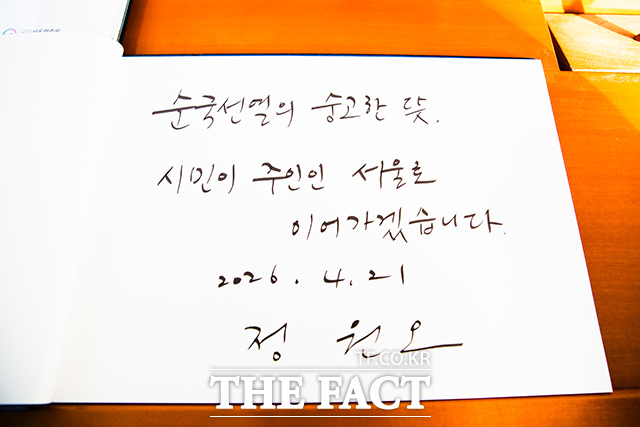 순국선열의 숭고한 뜻.
시민이 주인인 서울로
이어가겠습니다.
2026. 4. 21
정 원오
TF.CO.KR
THE FACT